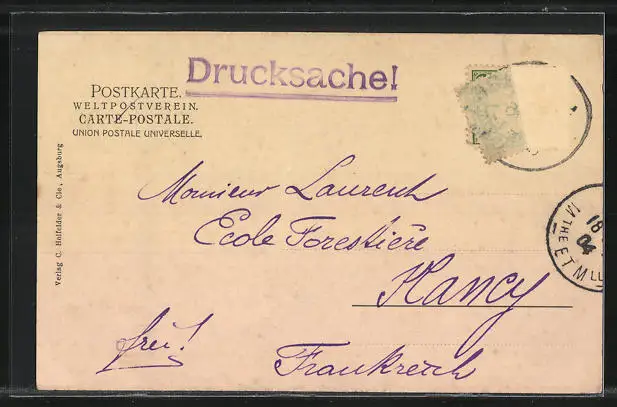 Drucksache!
POSTKARTE.
WELTPOSTVEREIN.
CARTE-POSTALE.
UNION POSTALE UNIVERSELLE.
Verlag C. Holfelder & Cie., Augsburg
Monsieur Laurent
Ecole Forestière
Nancy
frei!
Frankreich
18
04
ET M